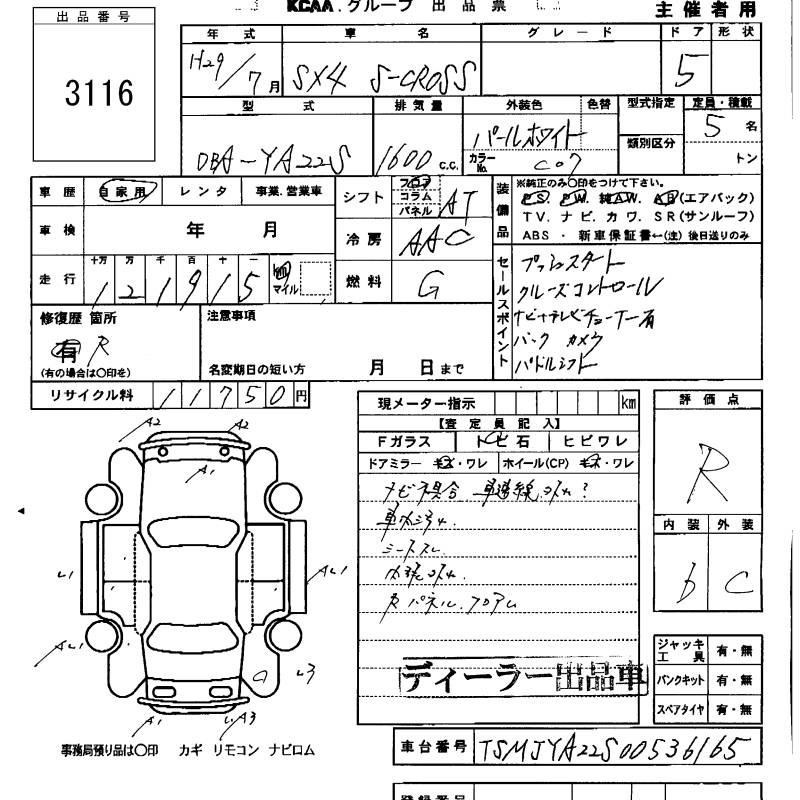 KCAA.グループ 出品票
主催者用
出品番号
3116
年式 車名 グレード ドア 形状
H29/7月 SX4 S-CROSS 5
型式 排気量 外装色 色替 型式指定 定員・積載
DBA-YA22S 1600 C.C. パールホワイト 類別区分 5名
カラーNo. トン
車歴 自家用 レンタ 事業.営業車
シフト フロア コラム パネル AT
装備品 ※純正のみ〇印をつけて下さい。
P.S. P.W. 純A.W. A.B(エアバック)
T.V. ナビ. カワ. S.R(サンルーフ)
A.B.S ・ 新車保証書←(注) 後日送りのみ
車検 年 月
冷房 AAC
走行 十万 万 千 百 十 一
121915 km マイル
燃料 G
セールスポイント
プッシュスタート
クルーズコントロール
ナビ+テレビチューナー有
バックカメラ
パドルシフト
修復歴 箇所
有 R
(有の場合は〇印を)
注意事項
名変期日の短い方 月 日まで
リサイクル料 11750円
現メーター指示 km
【査定員記入】
Fガラス トビ石 ヒビワレ
ドアミラー キズ・ワレ ホイール(CP) キズ・ワレ
車内
シートスレ
Rパネル.フロア
ディーラー出品車
評価点
R
内装 外装
b C
ジャッキ 工具 有・無
パンクキット 有・無
スペアタイヤ 有・無
A2 A2
A1
A1
A1
A1
事務局預り品は〇印 カギ リモコン ナビロム
車台番号 TSMJYA22S00536165
登録番号